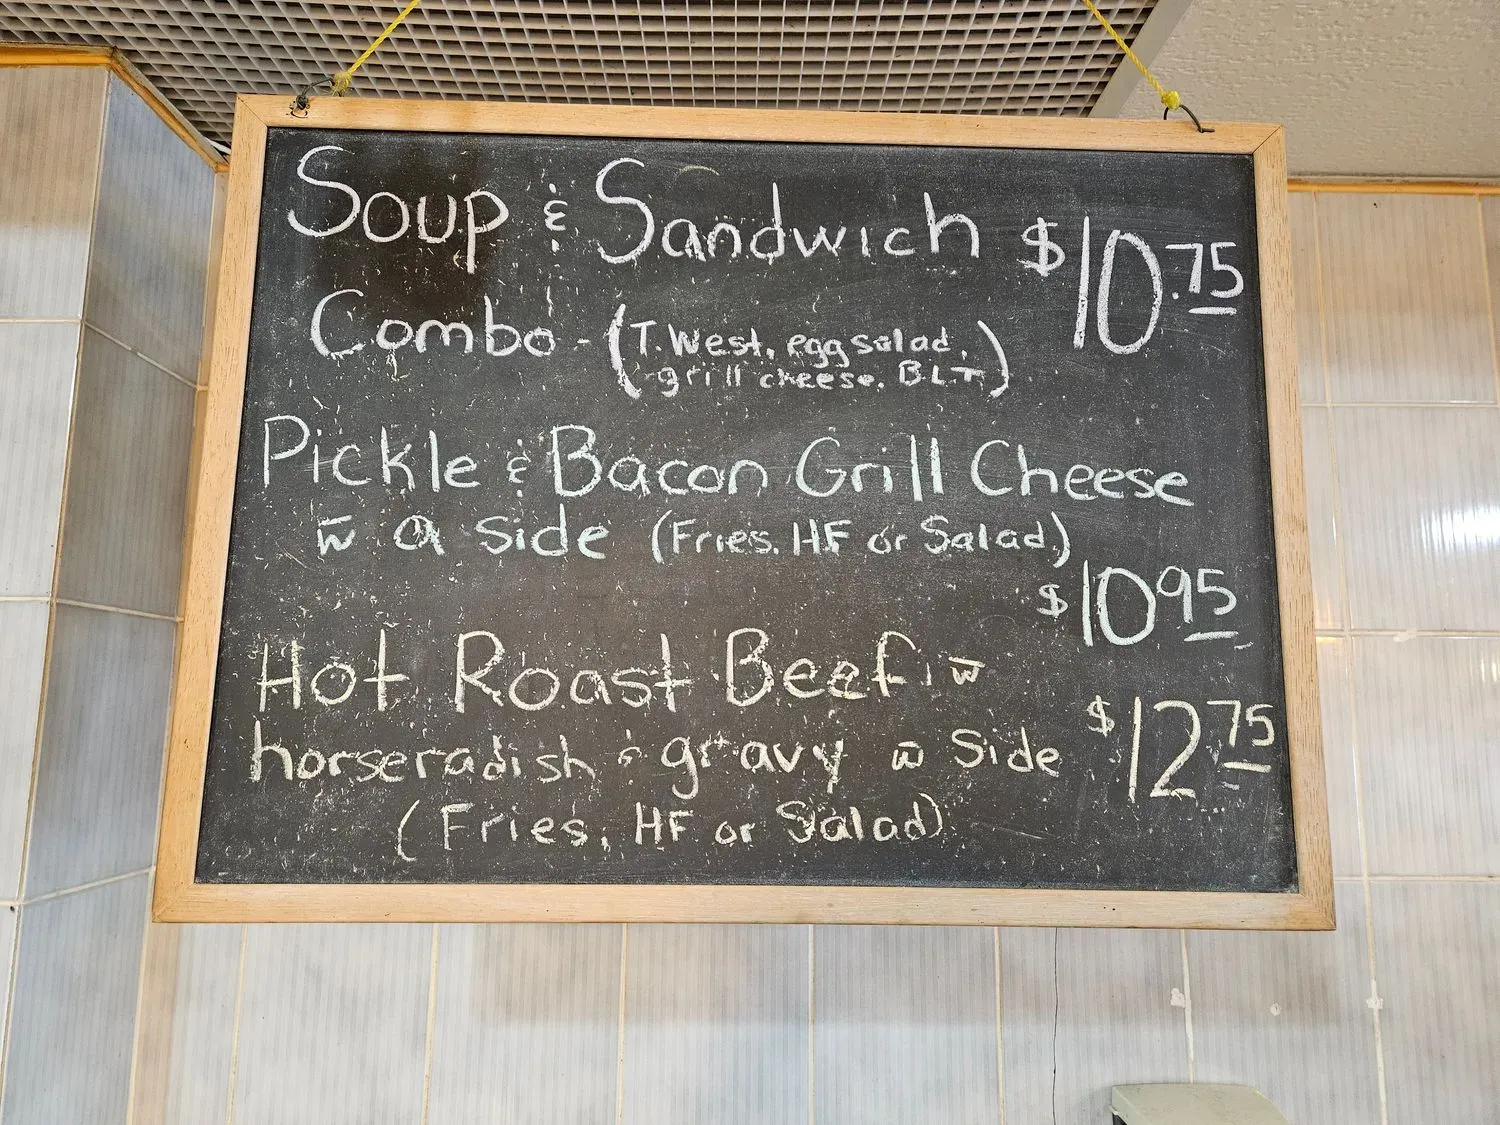 Soup & Sandwich $10.75
Combo - (T. West, egg salad,
grill cheese, BLT)
Pickle & Bacon Grill Cheese
w̅ a side (Fries, HF or Salad)
$10 95
Hot Roast Beef w̅
horseradish & gravy w̅ Side $12 75
(Fries, HF or Salad)